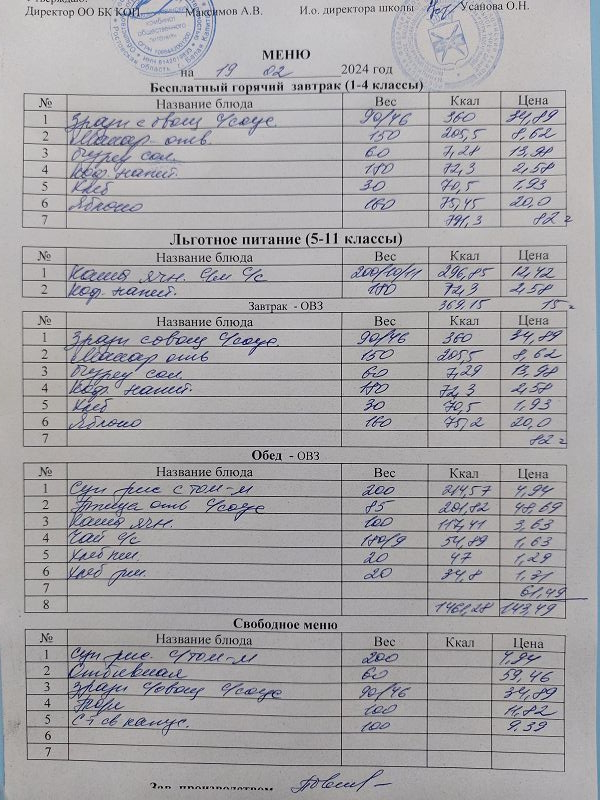 Директор ОО БК КОП Максимов А.В. И.о. директора школы Усанова О.Н.
МЕНЮ
на 19 02 2024 год
Бесплатный горячий завтрак (1-4 классы)
№ Название блюда Вес Ккал Цена
1 Зразы с овощ с/соус 90/46 360 34,89
2 Макар отв. 150 205,5 8,62
3 Огурец сол. 60 7,28 13,98
4 Коф. напит. 180 72,3 2,58
5 Хлеб 30 70,5 1,93
6 Яблоко 160 75,45 20,0
7 791,3 82=
Льготное питание (5-11 классы)
№ Название блюда Вес Ккал Цена
1 Каша ячн. с/м с/с 200/10/11 296,85 12,42
2 Коф. напит. 180 72,3 2,58
Завтрак - ОВЗ 369,15 15=
№ Название блюда Вес Ккал Цена
1 Зразы с овощ с/соус 90/46 360 34,89
2 Макар отв 150 205,5 8,62
3 Огурец сол. 60 7,29 13,98
4 Коф. напит 180 72,3 2,58
5 Хлеб 30 70,5 1,93
6 Яблоко 160 75,2 20,0
7 82=
Обед - ОВЗ
№ Название блюда Вес Ккал Цена
1 Суп рис с том-м 200 214,57 4,94
2 Птица отв с/соус 85 201,82 48,69
3 Каша ячн. 100 117,41 3,63
4 Чай с/с 180/9 54,89 1,63
5 Хлеб пш. 20 47 1,29
6 Хлеб рж. 20 34,8 1,31
7 61,49
8 1461,28 143,49
Свободное меню
№ Название блюда Вес Ккал Цена
1 Суп рис. с/том-м 200 4,94
2 Отбивная 60 59,46
3 Зразы с/овощ с/соус 90/46 34,89
4 Пюре 100 11,82
5 С-т св капус. 100 9.39
6
7
Зав. производством